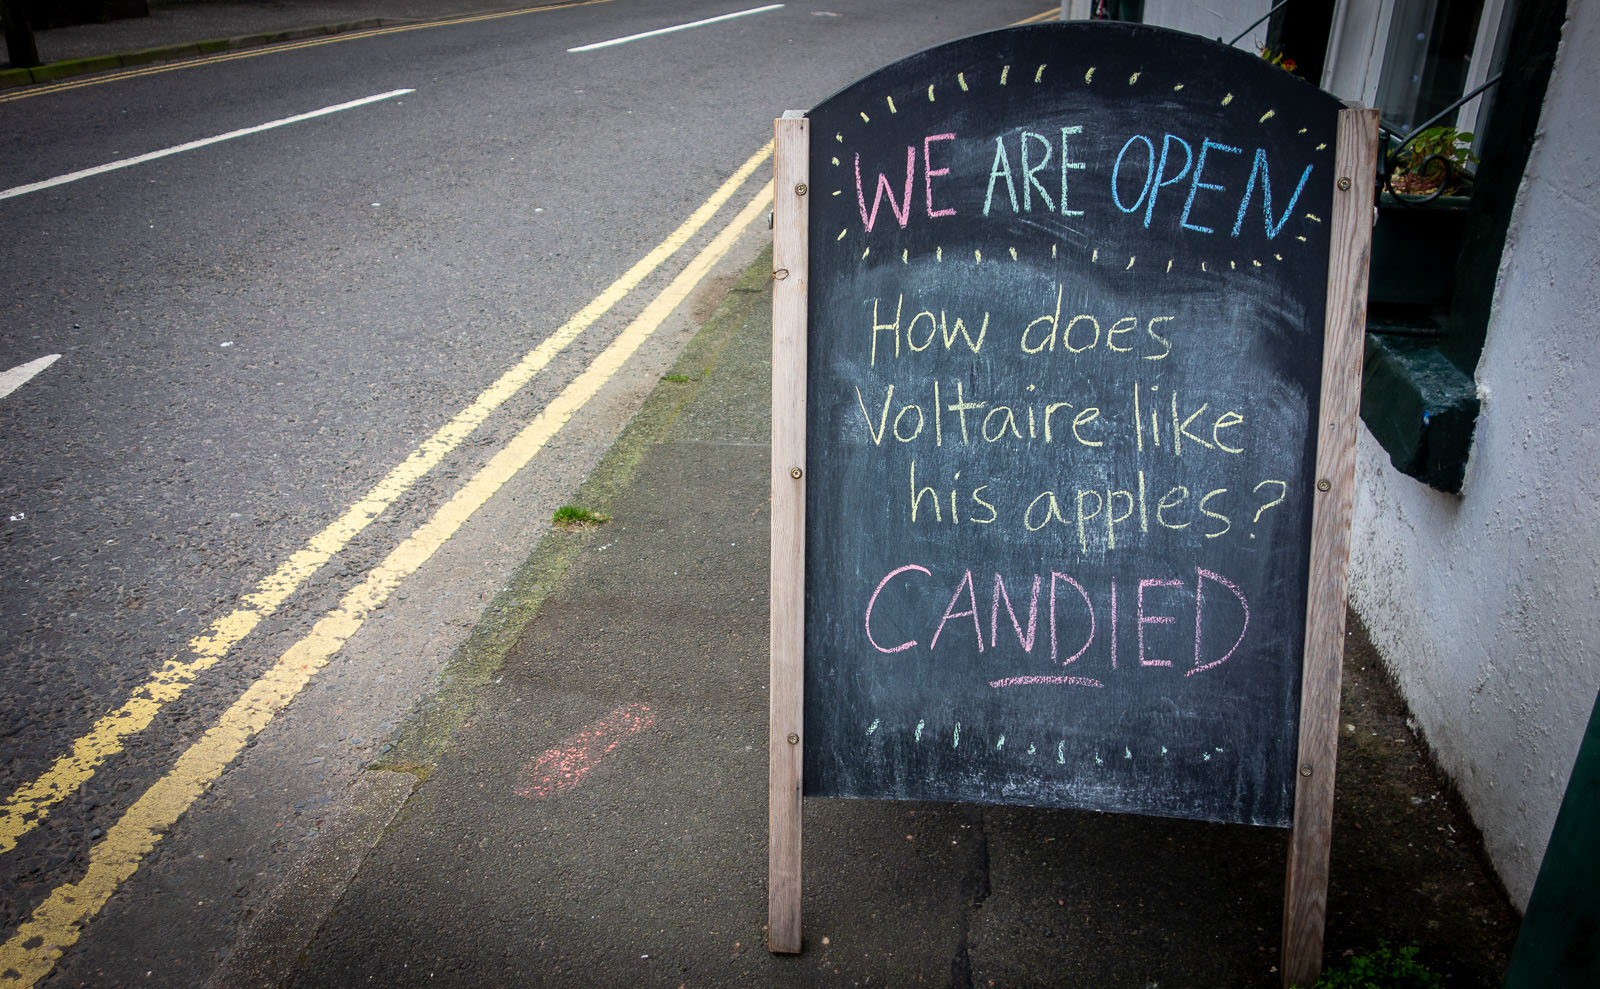 WE ARE OPEN
How does
Voltaire like
his apples?
CANDIED